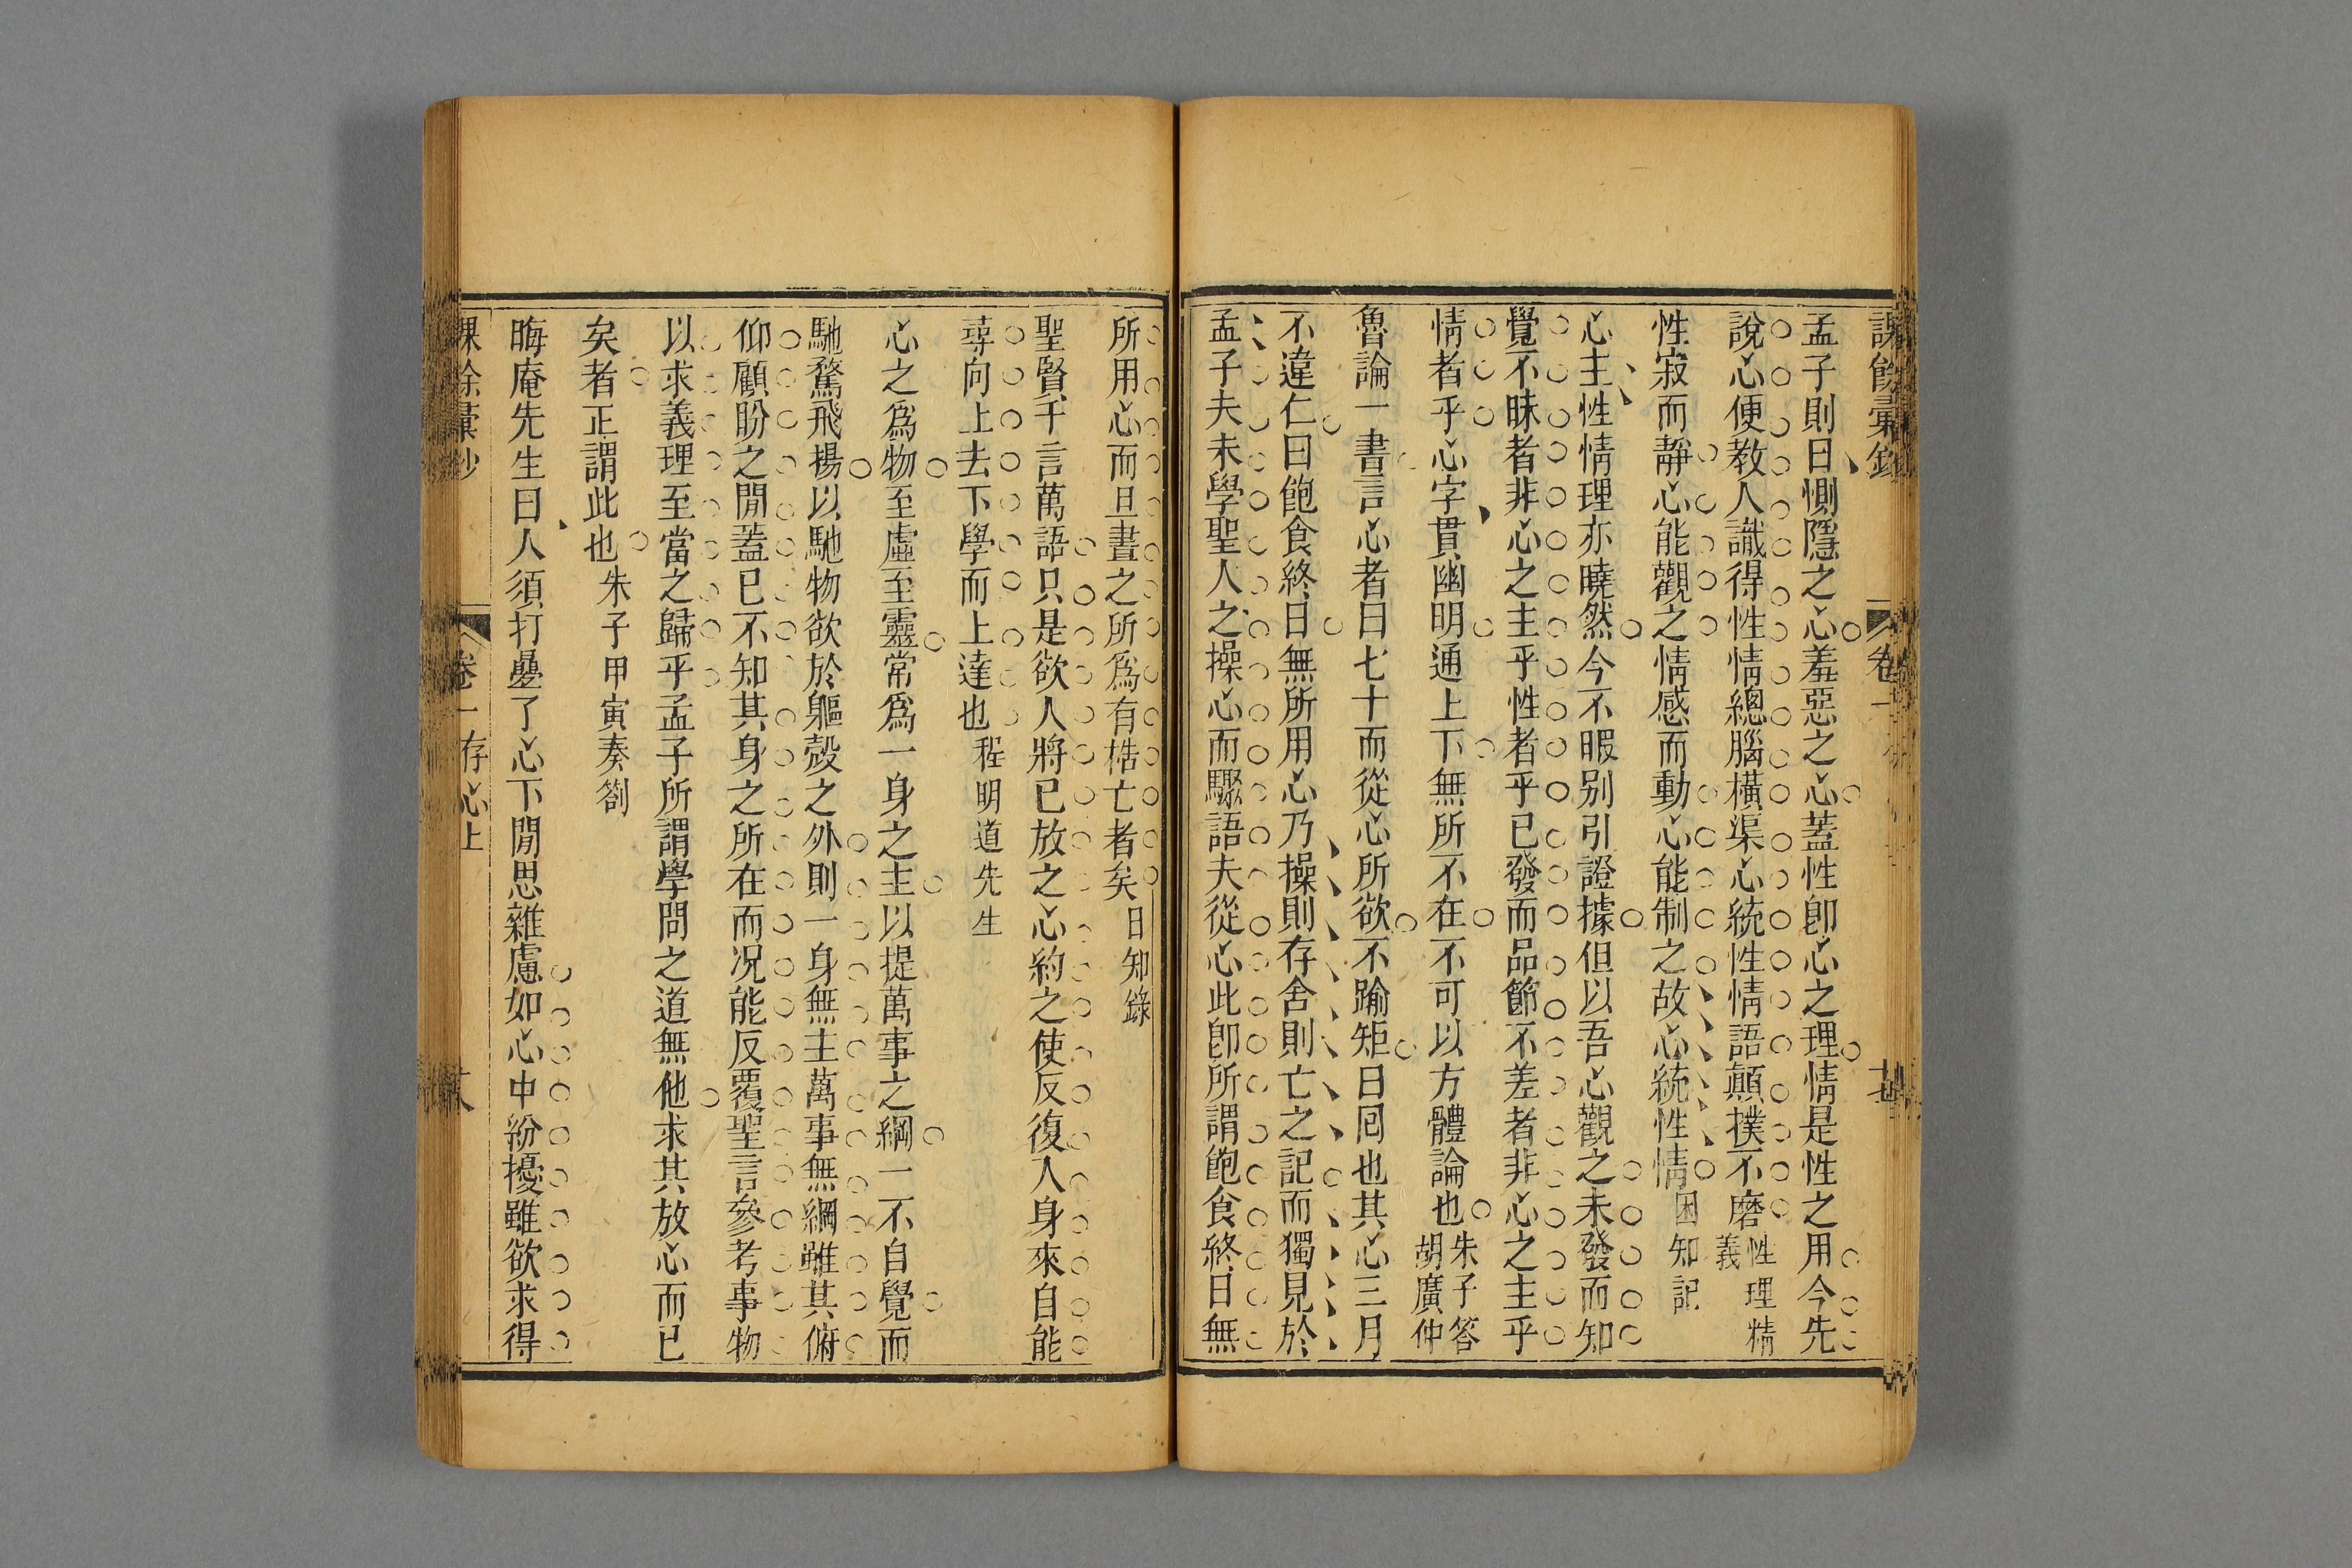 課餘彙鈔
卷一
孟子則曰惻隱之心羞惡之心蓋性卽心之理情是性之用今先
說心便教人識得性情總腦橫渠心統性情語顛撲不磨性理精義
性寂而靜心能觀之情感而動心能制之故心統性情困知記
心主性情理亦曉然今不暇別引證據但以吾心觀之未發而知
覺不昧者非心之主乎性者乎已發而品節不差者非心之主乎
情者乎心字貫幽明通上下無所不在不可以方體論也朱子答胡廣仲
魯論一書言心者曰七十而從心所欲不踰矩曰囘也其心三月
不違仁曰飽食終日無所用心乃操則存舍則亡之記而獨見於
孟子夫未學聖人之操心而驟語夫從心此卽所謂飽食終日無
所用心而旦晝之所爲有梏亡者矣日知錄
聖賢千言萬語只是欲人將已放之心約之使反復入身來自能
尋向上去下學而上達也程明道先生
心之爲物至虛至靈常爲一身之主以提萬事之綱一不自覺而
馳騖飛揚以馳物欲於軀殼之外則一身無主萬事無綱雖其俯
仰顧盼之閒蓋已不知其身之所在而况能反覆聖言參考事物
以求義理至當之歸乎孟子所謂學問之道無他求其放心而已
矣者正謂此也朱子甲寅奏劄
晦庵先生曰人須打疊了心下閒思雜慮如心中紛擾雖欲求得
課餘彙鈔
卷一存心上